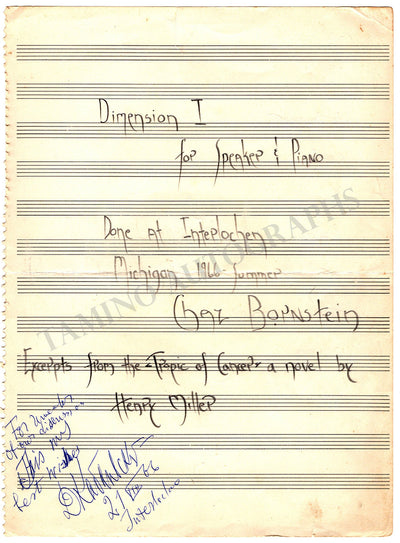 Dimension I
for Speaker & Piano
Done At Interlochen
Michigan 1966 Summer
Chaz Bornstein
Excerpts from the "Tropic of Cancer" a novel by
Henry Miller
For
of our discussion
this my
best wishes
66
Interlochen
TAMINO AUTOGRAPHS